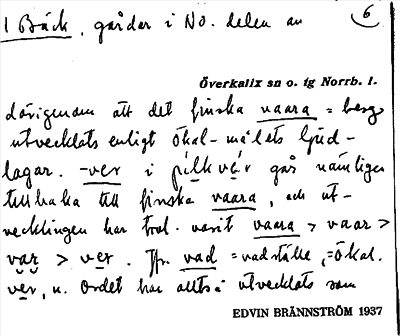 1 Bäck, gårdar i NO. delen av 6
Överkalix sn o. tg Norrb. l.
därigenom att det finska vaara = berg
utvecklats enligt Ökal-målets ljud-
lagar. -ver i pilkvér går nämligen
tillbaka till finska vaara, och ut-
vecklingen har trol. varit vaara > vaar >
var > ver. Jfr. vad = vadställe, = Ökal.
ver, u. Ordet har alltså utvecklats som
EDVIN BRÄNNSTRÖM 1937